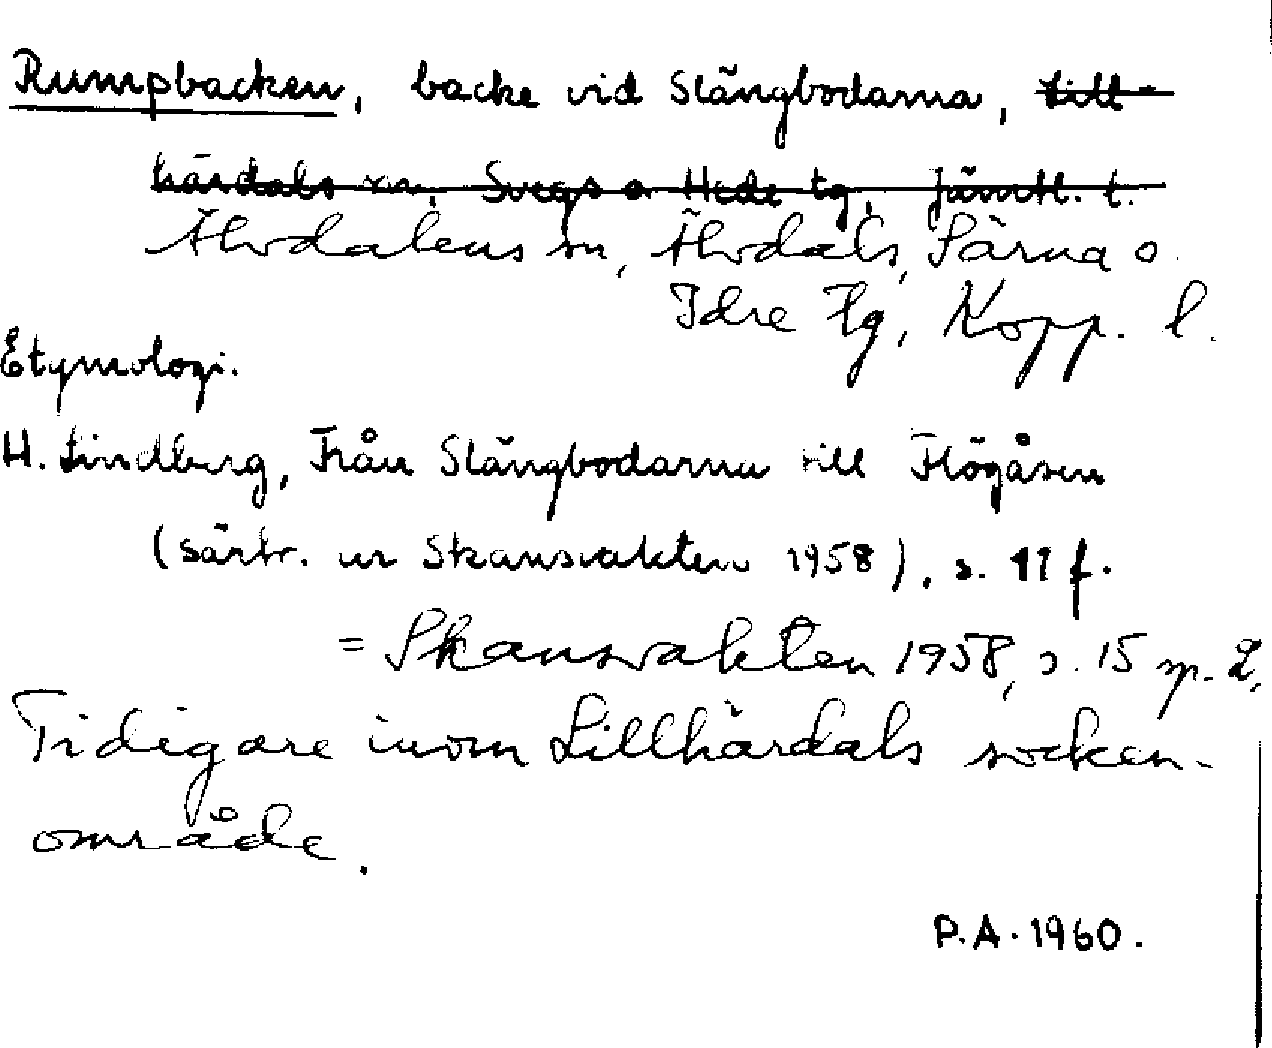 Rumpbacken, backe vid Slängbodarna, Lill-
härdals sn, Svegs o Hede tg, Jämtl. l.
Älvdalens sn, Älvdals, Särna o.
Idre tg, Kopp. l.
Etymologi.
H. Lindberg, Från Slängbodarna till Flögåsen
(särtr. ur Skansvakten 1958), s. 11 f.
= Skansvakten 1958, s. 15 sp. 2.
Tidigare inom Lillhärdals socken-
område.
P.A. 1960.